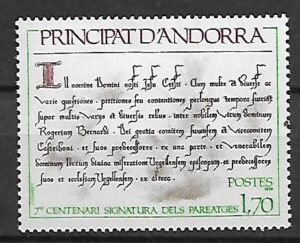 PRINCIPAT D'ANDORRA
In nomine Domini nostri Jesu Cristi. Cum multe et diverse ac
varie questiones, petitiones seu contentiones perlongua tempora fuerint
super multis varys et diversis rebus, inter nobilem virum Dominum
Rogerium Bernardi. Dei gratia comitem fuxensem et vicecomitem
Castriboni et suos predecessores, ex una parte, et venerabilem
Dominum Petrum divina miseratione Urgellensem episcopum, et predecessores
suos et ecclesiam Urgellensem, ex altera.
POSTES
7è CENTENARI SIGNATURA DELS PAREATGES
1,70